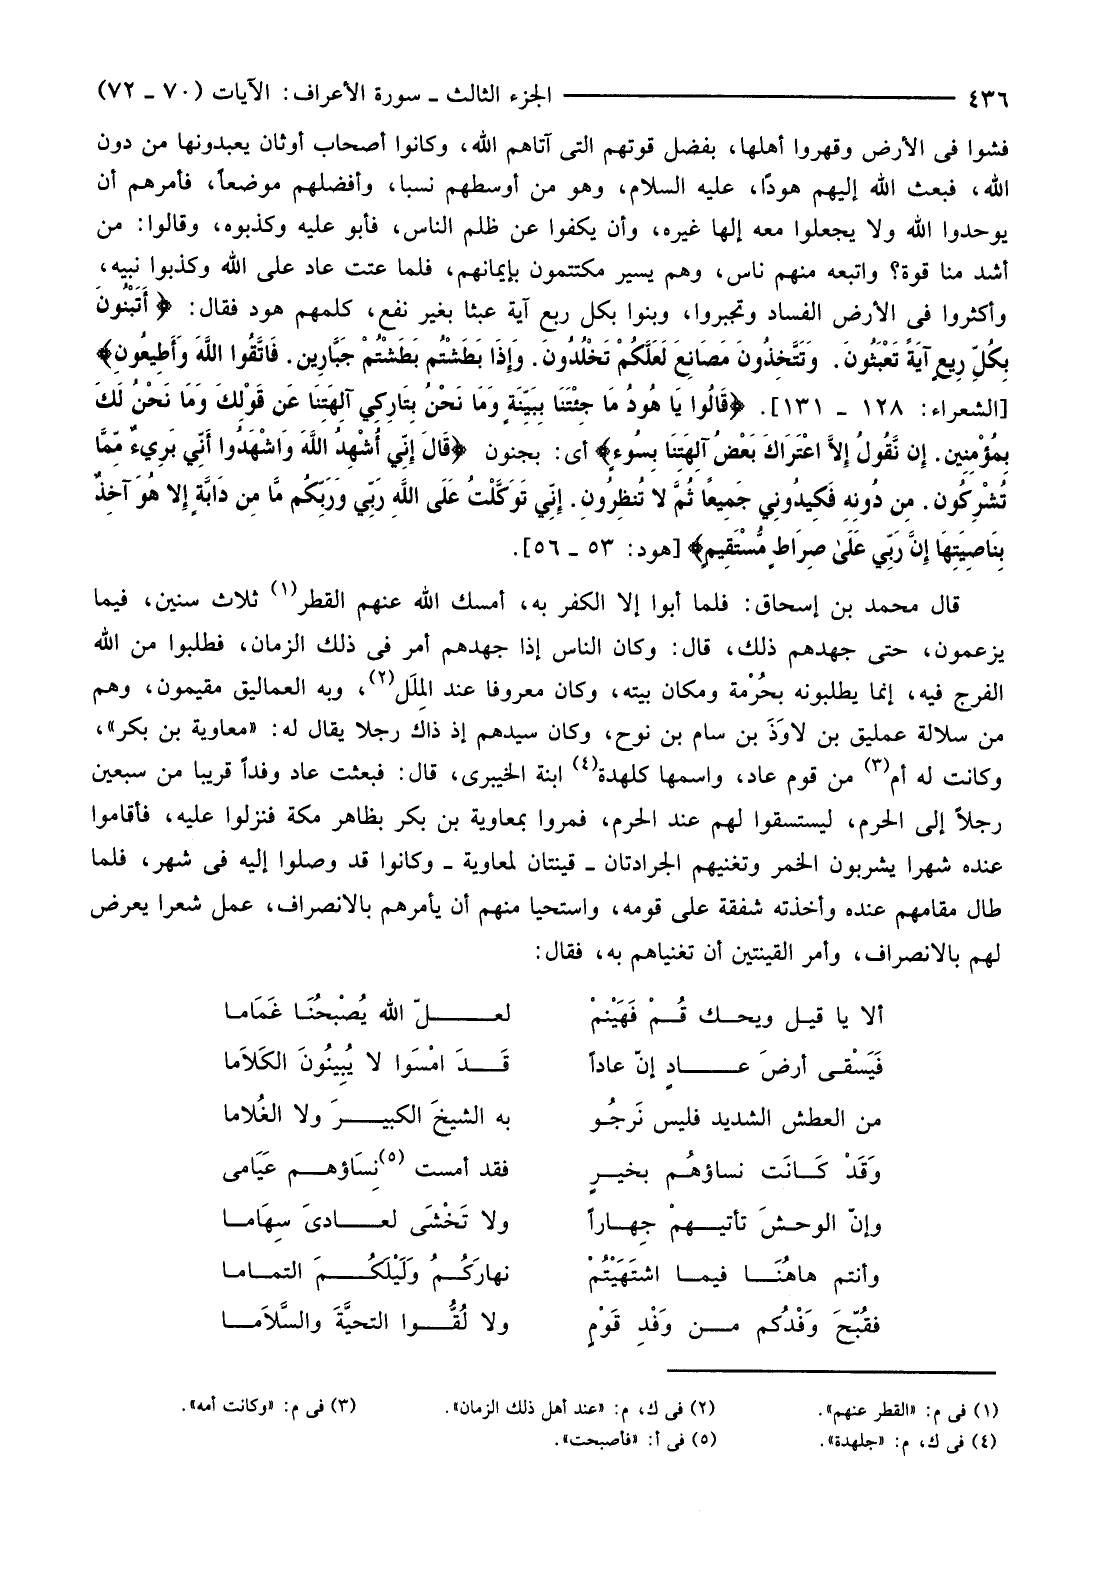 ٤٣٦ ــــــــ الجزء الثالث ـ سورة الأعراف: الآيات (٧٠ ـ ٧٢)
فشوا فى الأرض وقهروا أهلها، بفضل قوتهم التى آتاهم الله، وكانوا أصحاب أوثان يعبدونها من دون
الله، فبعث الله إليهم هودًا، عليه السلام، وهو من أوسطهم نسبا، وأفضلهم موضعاً، فأمرهم أن
يوحدوا الله ولا يجعلوا معه إلها غيره، وأن يكفوا عن ظلم الناس، فأبو عليه وكذبوه، وقالوا: من
أشد منا قوة؟ واتبعه منهم ناس، وهم يسير مكتتمون بإيمانهم، فلما عتت عاد على الله وكذبوا نبيه،
وأكثروا فى الأرض الفساد وتجبروا، وبنوا بكل ربع آية عبثا بغير نفع، كلمهم هود فقال: ﴿أَتَبْنُونَ
بِكُلِّ رِيعٍ آيَةً تَعْبَثُونَ. وَتَتَّخِذُونَ مَصَانِعَ لَعَلَّكُمْ تَخْلُدُونَ. وَإِذَا بَطَشْتُم بَطَشْتُمْ جَبَّارِين. فَاتَّقُوا اللَّهَ وَأَطِيعُونِ﴾
[الشعراء: ١٢٨ ـ ١٣١]. ﴿قَالُوا يَا هُودُ مَا جِئْتَنَا بِبَيِّنَةٍ وَمَا نَحْنُ بِتَارِكِي آلِهَتِنَا عَن قَوْلِكَ وَمَا نَحْنُ لَكَ
بِمُؤْمِنِين. إِن نَّقُولُ إِلاَّ اعْتَرَاكَ بَعْضُ آلِهَتِنَا بِسُوءٍ﴾ أى: بجنون ﴿قَالَ إِنِّي أُشْهِدُ اللَّهَ وَاشْهَدُوا أَنِّي بَرِيءٌ مِّمَّا
تُشْرِكُون. مِن دُونِهِ فَكِيدُونِي جَمِيعاً ثُمَّ لا تُنظِرُونِ. إِنِّي تَوَكَّلْتُ عَلَى اللَّهِ رَبِّي وَرَبِّكُم مَّا مِن دَابَّةٍ إِلا هُوَ آخِذٌ
بِنَاصِيَتِهَا إِنَّ رَبِّي عَلَىٰ صِرَاطٍ مُّسْتَقِيمٍ﴾ [هود: ٥٣ ـ ٥٦].
قال محمد بن إسحاق: فلما أبوا إلا الكفر به، أمسك الله عنهم القطر(١) ثلاث سنين، فيما
يزعمون، حتى جهدهم ذلك، قال: وكان الناس إذا جهدهم أمر فى ذلك الزمان، فطلبوا من الله
الفرج فيه، إنما يطلبونه بحُرْمة ومكان بيته، وكان معروفا عند المِلَل(٢)، وبه العماليق مقيمون، وهم
من سلالة عمليق بن لاوَذَ بن سام بن نوح، وكان سيدهم إذ ذاك رجلا يقال له: «معاوية بن بكر»،
وكانت له أم(٣) من قوم عاد، واسمها كلهدة(٤) ابنة الخيبرى، قال: فبعثت عاد وفداً قريبا من سبعين
رجلاً إلى الحرم، ليستسقوا لهم عند الحرم، فمروا بمعاوية بن بكر بظاهر مكة فنزلوا عليه، فأقاموا
عنده شهرا يشربون الخمر وتغنيهم الجرادتان ـ قينتان لمعاوية ـ وكانوا قد وصلوا إليه فى شهر، فلما
طال مقامهم عنده وأخذته شفقة على قومه، واستحيا منهم أن يأمرهم بالانصراف، عمل شعرا يعرض
لهم بالانصراف، وأمر القينتين أن تغنياهم به، فقال:
ألا يا قيل ويحك قُمْ فَهَيْنمْ لعلّ الله يُصْبحُنَا غَمَاما
فَيَسْقى أرضَ عادٍ إنّ عاداً قَدَ امْسَوا لا يُبِينُونَ الكَلاَما
من العطش الشديد فليس نَرجُو به الشيخَ الكبيرَ ولا الغُلاما
وَقَدْ كَانَت نساؤهُم بخيرٍ فقد أمست (٥)نِسَاؤهم عَيَامى
وإنّ الوحشَ تأتيهمْ جِهاراً ولا تَخْشَى لعادىَ سِهَاما
وأنتم هاهُنَا فيما اشتَهَيْتُمْ نهارَكُمُ وَلَيْلَكُمُ التماما
فقُبّحَ وَفْدُكم من وَفْدِ قَوْمٍ ولا لُقُّوا التحيَّةَ والسَّلاَما
(١) فى م: «القطر عنهم». (٢) فى ك، م: «عند أهل ذلك الزمان». (٣) فى م: «وكانت أمه».
(٤) فى ك، م: «جلهدة». (٥) فى أ: «فأصبحت».